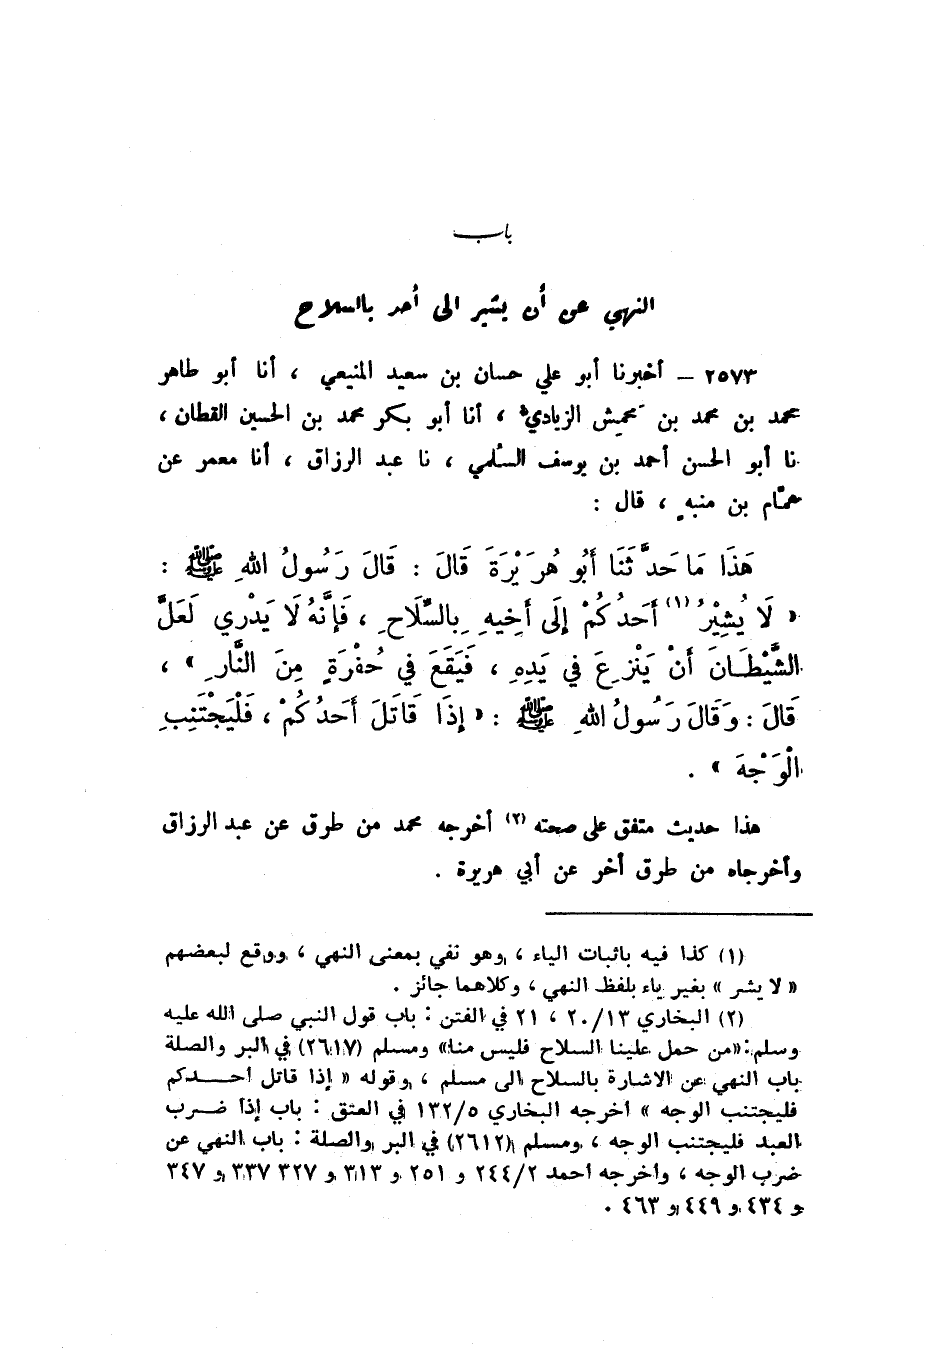 باب
النهي عن أن يشير الى أحد بالسلاح
٢٥٧٣ – أخبرنا أبو علي حسان بن سعيد المنيعي ، أنا أبو طاهر
محمد بن محمد بن محمِش الزيادي ، أنا أبو بكر محمد بن الحسين القطان ،
نا أبو الحسن أحمد بن يوسف السُّلمي ، نا عبد الرزاق ، أنا معمر عن
همَّام بن منبهٍ ، قال :
هَذَا مَا حَدَّثَنَا أَبُو هُرَيْرَةَ قَالَ : قَالَ رَسُولُ اللهِ ﷺ :
« لَا يُشِيْرُ (١) أَحَدُكُمْ إِلَى أَخِيهِ بِالسِّلَاحِ ، فَإِنَّهُ لَا يَدْرِي لَعَلَّ
الشَّيْطَانَ أَنْ يَنْزِعَ فِي يَدِهِ ، فَيَقَعَ فِي حُفْرَةٍ مِنَ النَّارِ » ،
قَالَ : وَقَالَ رَسُولُ اللهِ ﷺ : « إِذَا قَاتَلَ أَحَدُكُمْ ، فَلْيَجْتَنِبِ
الْوَجْهَ » .
هذا حديث متفق على صحته (٢) أخرجه محمد من طرق عن عبد الرزاق
وأخرجاه من طرق أخر عن أبي هريرة .
(١) كذا فيه باثبات الياء ، وهو نفي بمعنى النهي ، ووقع لبعضهم
« لا يشر » بغير ياء بلفظ النهي ، وكلاهما جائز .
(٢) البخاري ٢٠/١٣ ، ٢١ في الفتن : باب قول النبي صلى الله عليه
وسلم : «من حمل علينا السلاح فليس منا» ومسلم (٢٦١٧) في البر والصلة
باب النهي عن الاشارة بالسلاح الى مسلم ، وقوله « إذا قاتل أحدكم
فليجتنب الوجه » أخرجه البخاري ١٣٢/٥ في العتق : باب إذا ضرب
العبد فليجتنب الوجه ، ومسلم (٢٦١٢) في البر والصلة : باب النهي عن
ضرب الوجه ، وأخرجه أحمد ٢٤٤/٢ و ٢٥١ و ٣١٣ و ٣٢٧ ٣٣٧ و ٣٤٧
و ٤٣٤ و ٤٤٩ و ٤٦٣ .